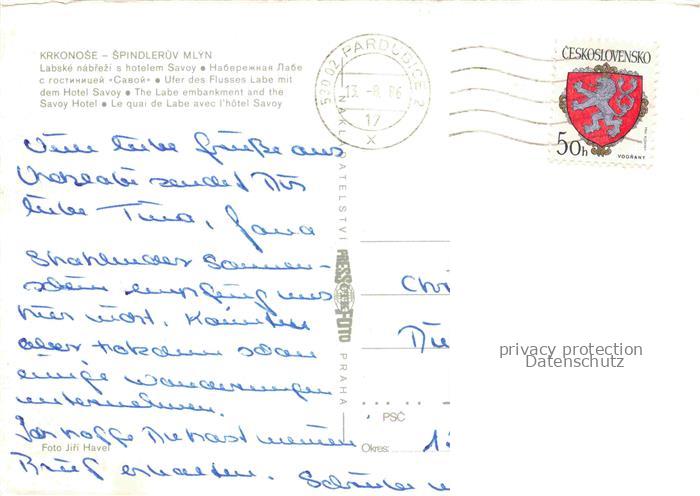 KRKONOŠE – ŠPINDLERŮV MLÝN
Labské nábřeží s hotelem Savoy ● Набережная Лабе
с гостиницей «Савой» ● Ufer des Flusses Labe mit
dem Hotel Savoy ● The Labe embankment and the
Savoy Hotel ● Le quai de Labe avec l'hôtel Savoy
530 02 PARDUBICE 2
13. -8. 86
17
x
ČESKOSLOVENSKO
50h
VODŇANY
liebe Grüße aus
sendet Dir
liebe Tina, Jana
Strahlender Sonnen-
schein empfing uns
hier nicht. Konnten
aber trotzdem schon
einige Wanderungen
unternehmen.
Ich hoffe Du hast meinen
Brief erhalten.
NAKLADATELSTVÍ
PRESSFOTO
PRAHA
PSČ
Okres:
Foto Jiří Havel
privacy protection
Datenschutz